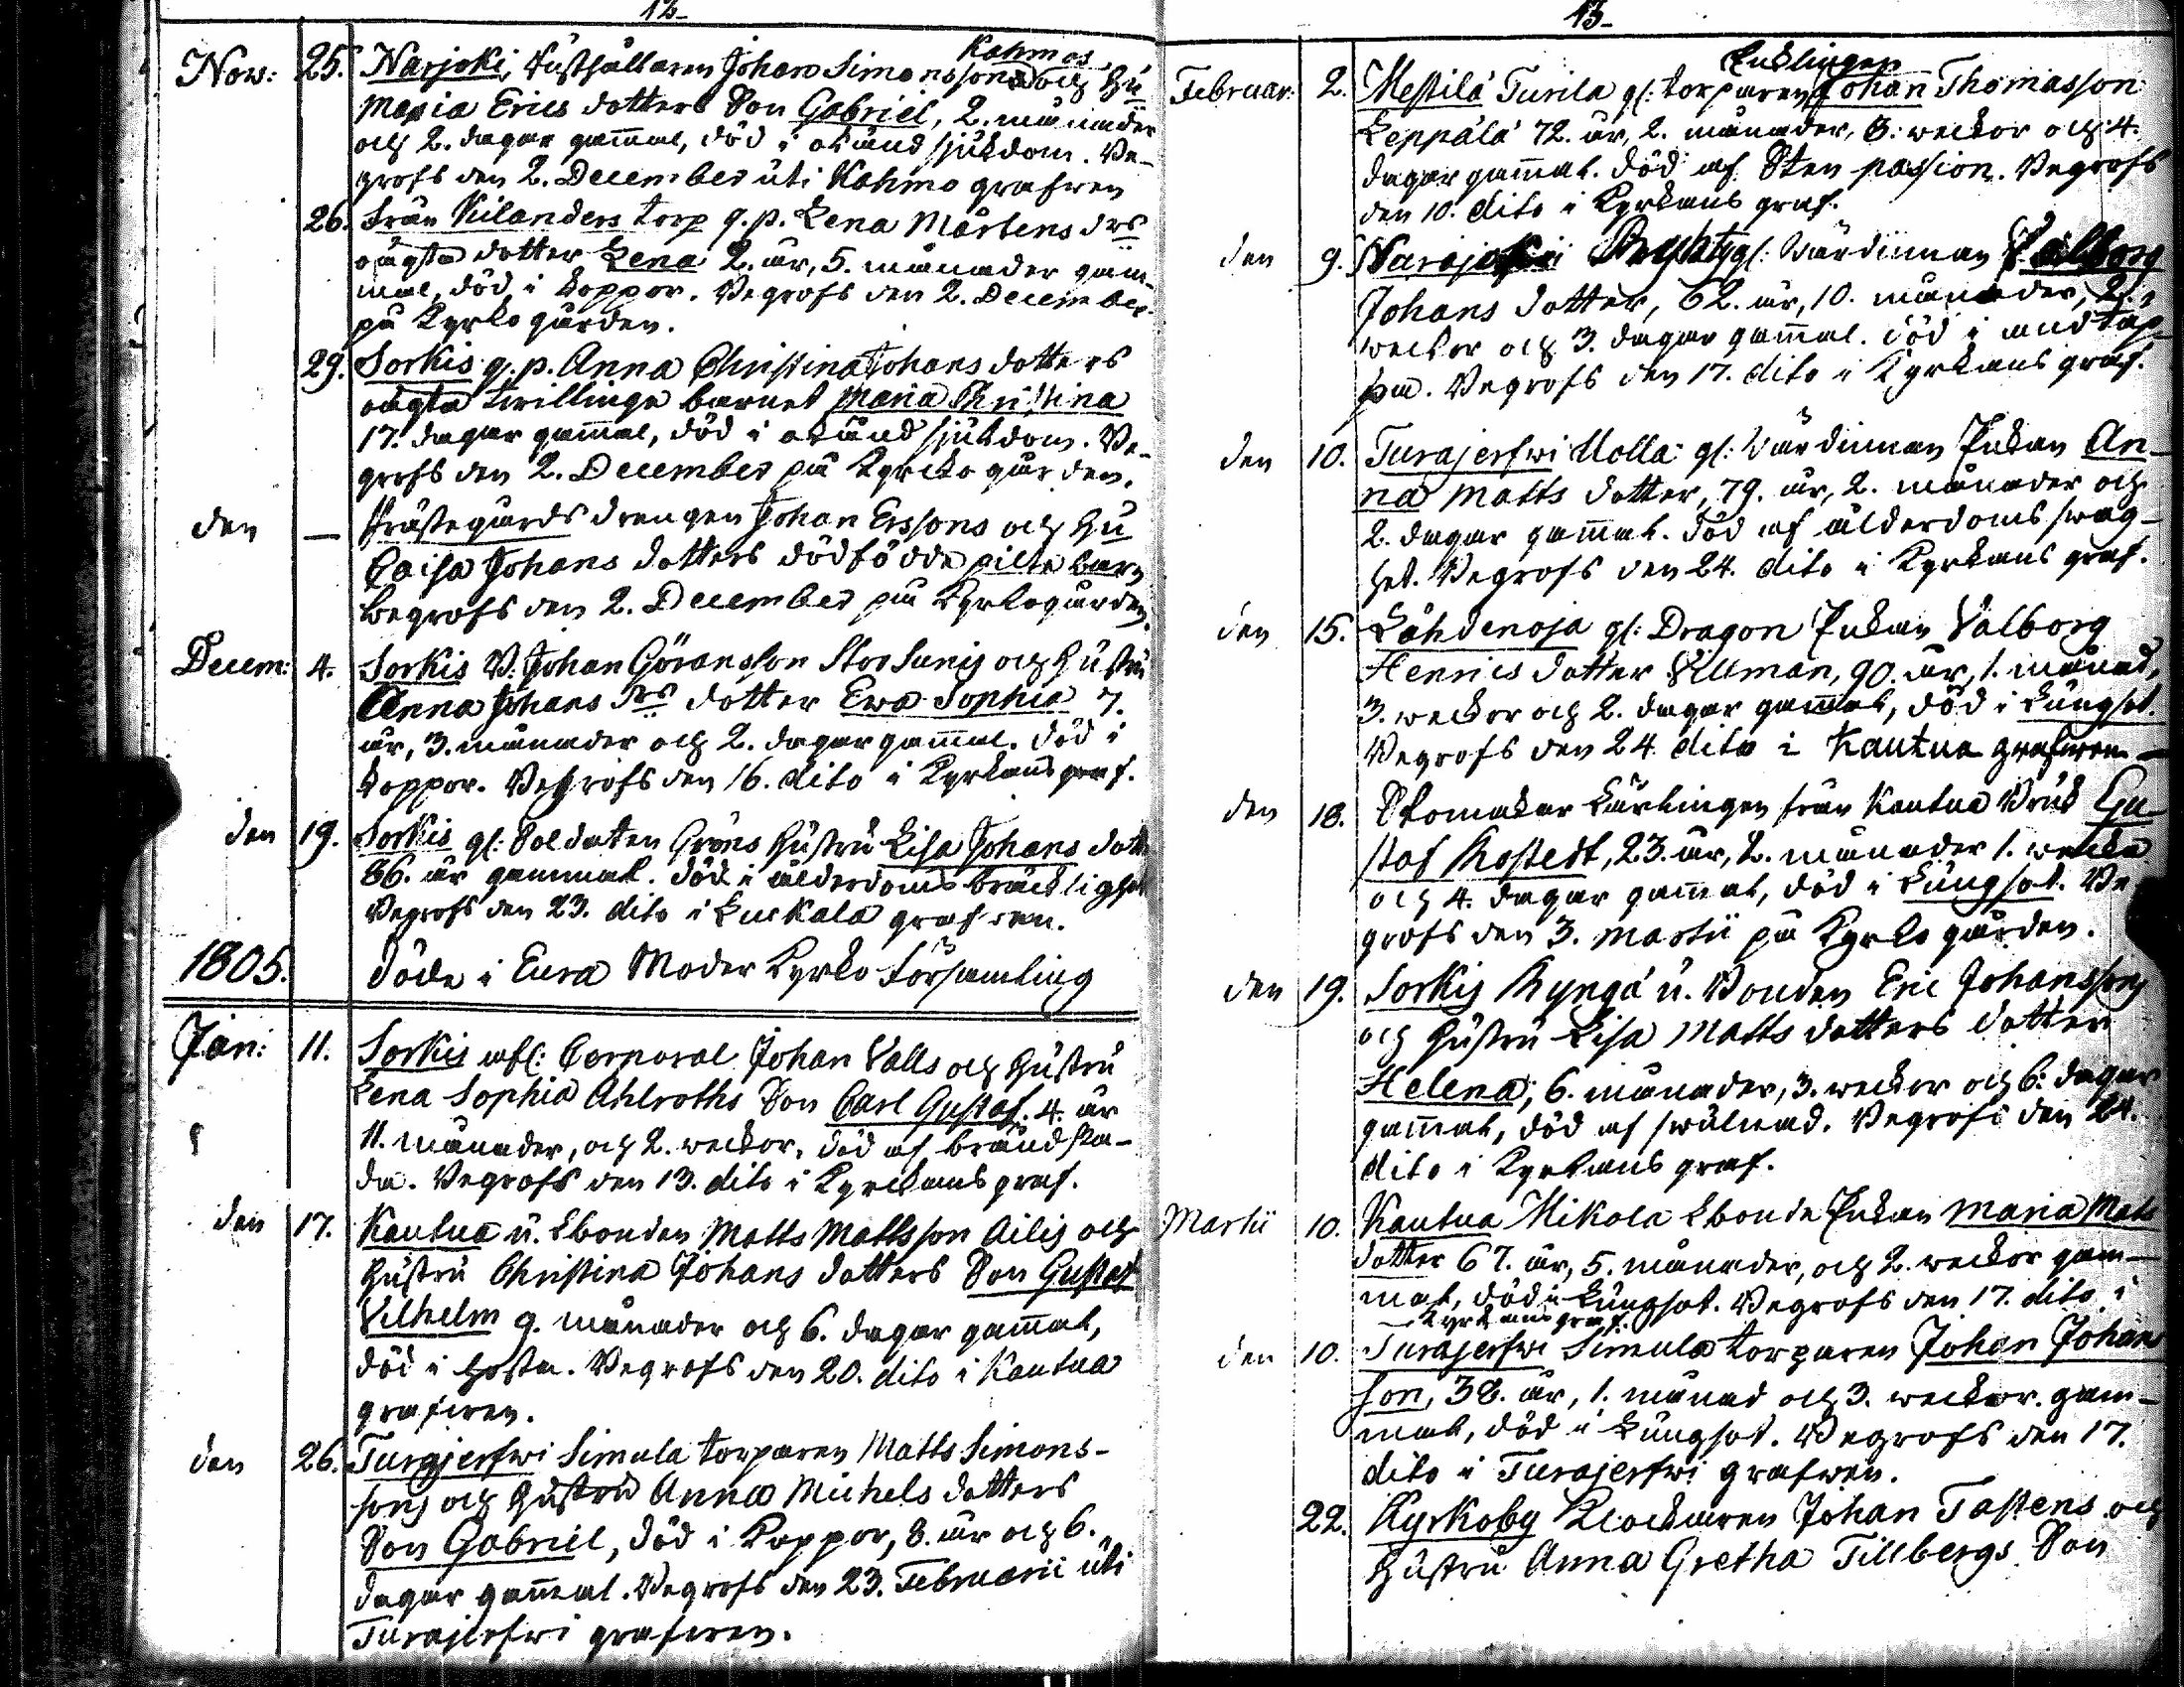 12.
Nov: 25. Narjoki, Rusthållaren Johan Simonssons Kahmos och Hu
Maria Erics dotters Son Gabriel, 2. månader
och 2. dagar gammal, död i okänd sjukdom. Be-
grofs den 2. December uti Kahmo grafwen
26. från Kilanders torp q. p. Lena Mårtens drs
oägta dotter Lena 2. år, 5. månader gam-
mal, död i koppor. Begrofs den 2. December
på Kyrko gården.
29. Sorkis q. p. Anna Christina Johans dotters
oägta twillinge barnet Maria Christina
17. dagar gammal, död i okänd sjukdom. Be-
grofs den 2. December på Kyrcko gården.
den — Prästegårds drengen Johan Erssons och Hu
Caisa Johans dotters dödfödde pilte barn
begrofs den 2. December på Kyrkogården.
Decem: 4. Sorkis B. Johan Göransson Stor Sunis och Hustru
Anna Johans drs dotter Ewa Sophia 7.
år, 3. månader och 2. dagar gammal. död i
koppor. Begrofs den 16. dito i Kyrkans graf.
den 19. Sorkis gl: Soldaten Gröns Hustru Lisa Johans dott
86. år gammal. död i ålderdoms bräcklighet
Begrofs den 23. dito i Luckala grafwen.
1805. Döde i Eura Moder Kyrko Församling
Jan: 11. Sorkis afsl: Corporal Johan Valls och Hustru
Lena Sophia Ahlroths Son Carl Gustaf. 4. år
11. månader, och 2. weckor, död af brändska-
da. Begrofs den 13. dito i Kyrckans graf.
den 17. Kautua u. Ebonden Matts Mattsson Ailis och
Hustru Christina Johans dotters Son Gustaf
Vilhelm 9. månader och 6. dagar gammal,
död i hosta. Begrofs den 20. dito i Kautua
grafwen.
den 26. Turajerfwi Simula torparen Matts Simons-
sons och Hustru Anna Michels dotters
Son Gabriel, död i Koppor, 8. år och 6.
dagar gammal. Begrofs den 23. Februarii uti
Turajerfwi grafwen.
13.
Februar: 2. Mestilä Turila gl: torparen Enklingen Johan Thomasson
Leppälä 72. år, 2. månader, 3. weckor och 4.
dagar gammal. död af Sten passion. Begrofs
den 10. dito i Kyrkans graf.
den 9. Narajoki gl: Wärdinnan Valborg
Johans dotter, 62. år, 10. månader, 2.
weckor och 3. dagar gammal. död i andtäp-
pa. Begrofs den 17. dito i Kyrkans graf.
den 10. Turajerfwi Uolla gl: Värdinnan Enkan An-
na Matts dotter, 79. år, 2. månader och
2. dagar gammal. död af ålderdoms swag-
het. Begrofs den 24. dito i Kyrkans graf.
den 15. Lähdenoja gl: Dragon Enkan Valborg
Henrics dotter Ullman, 90. år, 1. månad,
3. weckor och 2. dagar gammal, död i lungsot.
Begrofs den 24. dito i Kautua grafwen —
den 18. Skomakar Lärlingen från Kautua Bruk Gu-
staf Rostedt, 23. år, 2. månader 1. wecka
och 4. dagar gammal, död i Lungsot. Be
grofs den 3. Martii på Kyrko gården.
den 19. Sorkis Kyngä u. Bonden Eric Johanssons
och Hustru Lisa Matts dotters dotter
Helena, 6. månader, 3. weckor och 6. dagar
gammal, död af swulnad. Begrofs den 24.
dito i Kyrkans graf.
Martii 10. Kautua Mikola Ebonde Enkan Maria Mats
dotter 67. år, 5. månader, och 2. weckor gam-
mal, död i Lungsot. Begrofs den 17. dito i
Kyrkans graf.
den 10. Turajerfwi Simula torparen Johan Johans
son, 38. år, 1. månad och 3. weckor. gam-
mal, död i Lungsot. Begrofs den 17.
dito i Turajerfwi grafwen.
22. Kyrkoby Klockaren Johan Tastens och
Hustru Anna Gretha Tillbergs Son